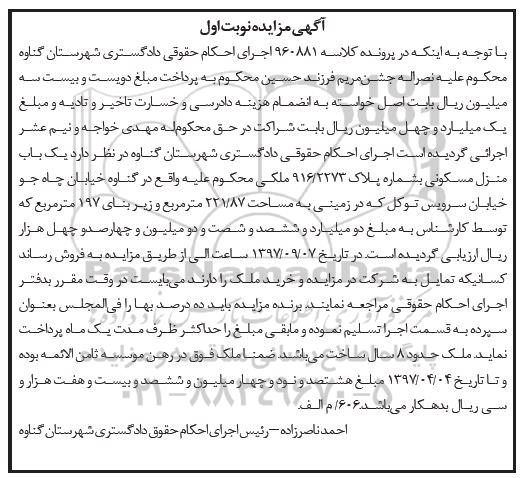 آگهی مزایده نوبت اول
با توجه به اینکه در پرونده کلاسه ۹۶۰۸۸۱ اجرای احکام حقوقی دادگستری شهرستان گناوه
محکوم علیه نصراله جشن‌مریم فرزند حسین محکوم به پرداخت مبلغ دویست و بیست سه
میلیون ریال بابت اصل خواسته به انضمام هزینه دادرسی و خسارت تاخیر و تادیه و مبلغ
یک میلیارد و چهل میلیون ریال بابت شراکت در حق محکوم‌له مهدی خواجه و نیم عشر
اجرائی گردیده است اجرای احکام حقوقی دادگستری شهرستان گناوه در نظر دارد یک باب
منزل مسکونی بشماره پلاک ۹۱۶/۲۲۷۳ ملکی محکوم علیه واقع در گناوه خیابان چاه جو
خیابان سرویس توکل که در زمینی به مساحت ۲۲۱/۸۷ مترمربع و زیر بنای ۱۹۷ مترمربع که
توسط کارشناس به مبلغ دو میلیارد و ششصد و شصت و دو میلیون و چهارصدو چهل هزار
ریال ارزیابی گردیده است. در تاریخ ۱۳۹۷/۰۹/۰۷ ساعت الی از طریق مزایده به فروش رساند
کسانیکه تمایل به شرکت در مزایده و خرید ملک را دارند می‌بایست در وقت مقرر بدفتر
اجرای احکام حقوقی مراجعه نمایند برنده مزایده باید ده درصد بها را فی‌المجلس بعنوان
سپرده به قسمت اجرا تسلیم نموده و مابقی مبلغ را حداکثر ظرف مدت یک ماه پرداخت
نماید. ملک حدود ۸ سال ساخت می‌باشد ضمنا ملک فوق در رهن موسسه ثامن الائمه بوده
و تا تاریخ ۱۳۹۷/۰۴/۰۴ مبلغ هشتصد و نود و چهار میلیون و ششصد و بیست و هفت هزار و
سی ریال بدهکار می‌باشد.۶۰۶/ م الف.
احمد ناصرزاده – رئیس اجرای احکام حقوق دادگستری شهرستان گناوه
ParsNamadData
۰۲۱-۸۸۳۴۹۶۷۰-۵